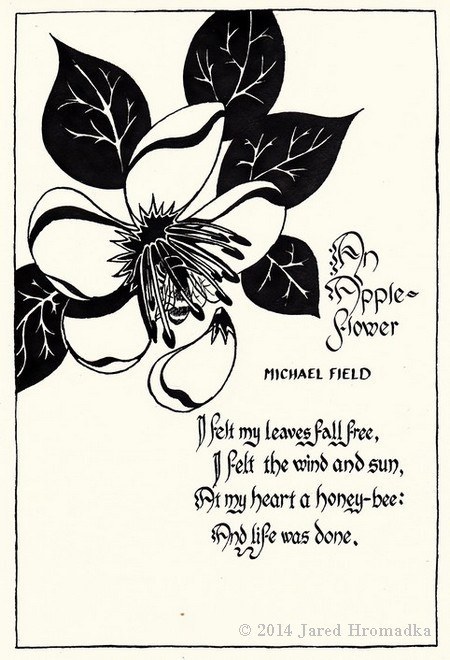 An
Apple-
flower
MICHAEL FIELD
I felt my leaves fall free,
I felt the wind and sun,
At my heart a honey-bee:
And life was done.
© 2014 Jared Hromadka